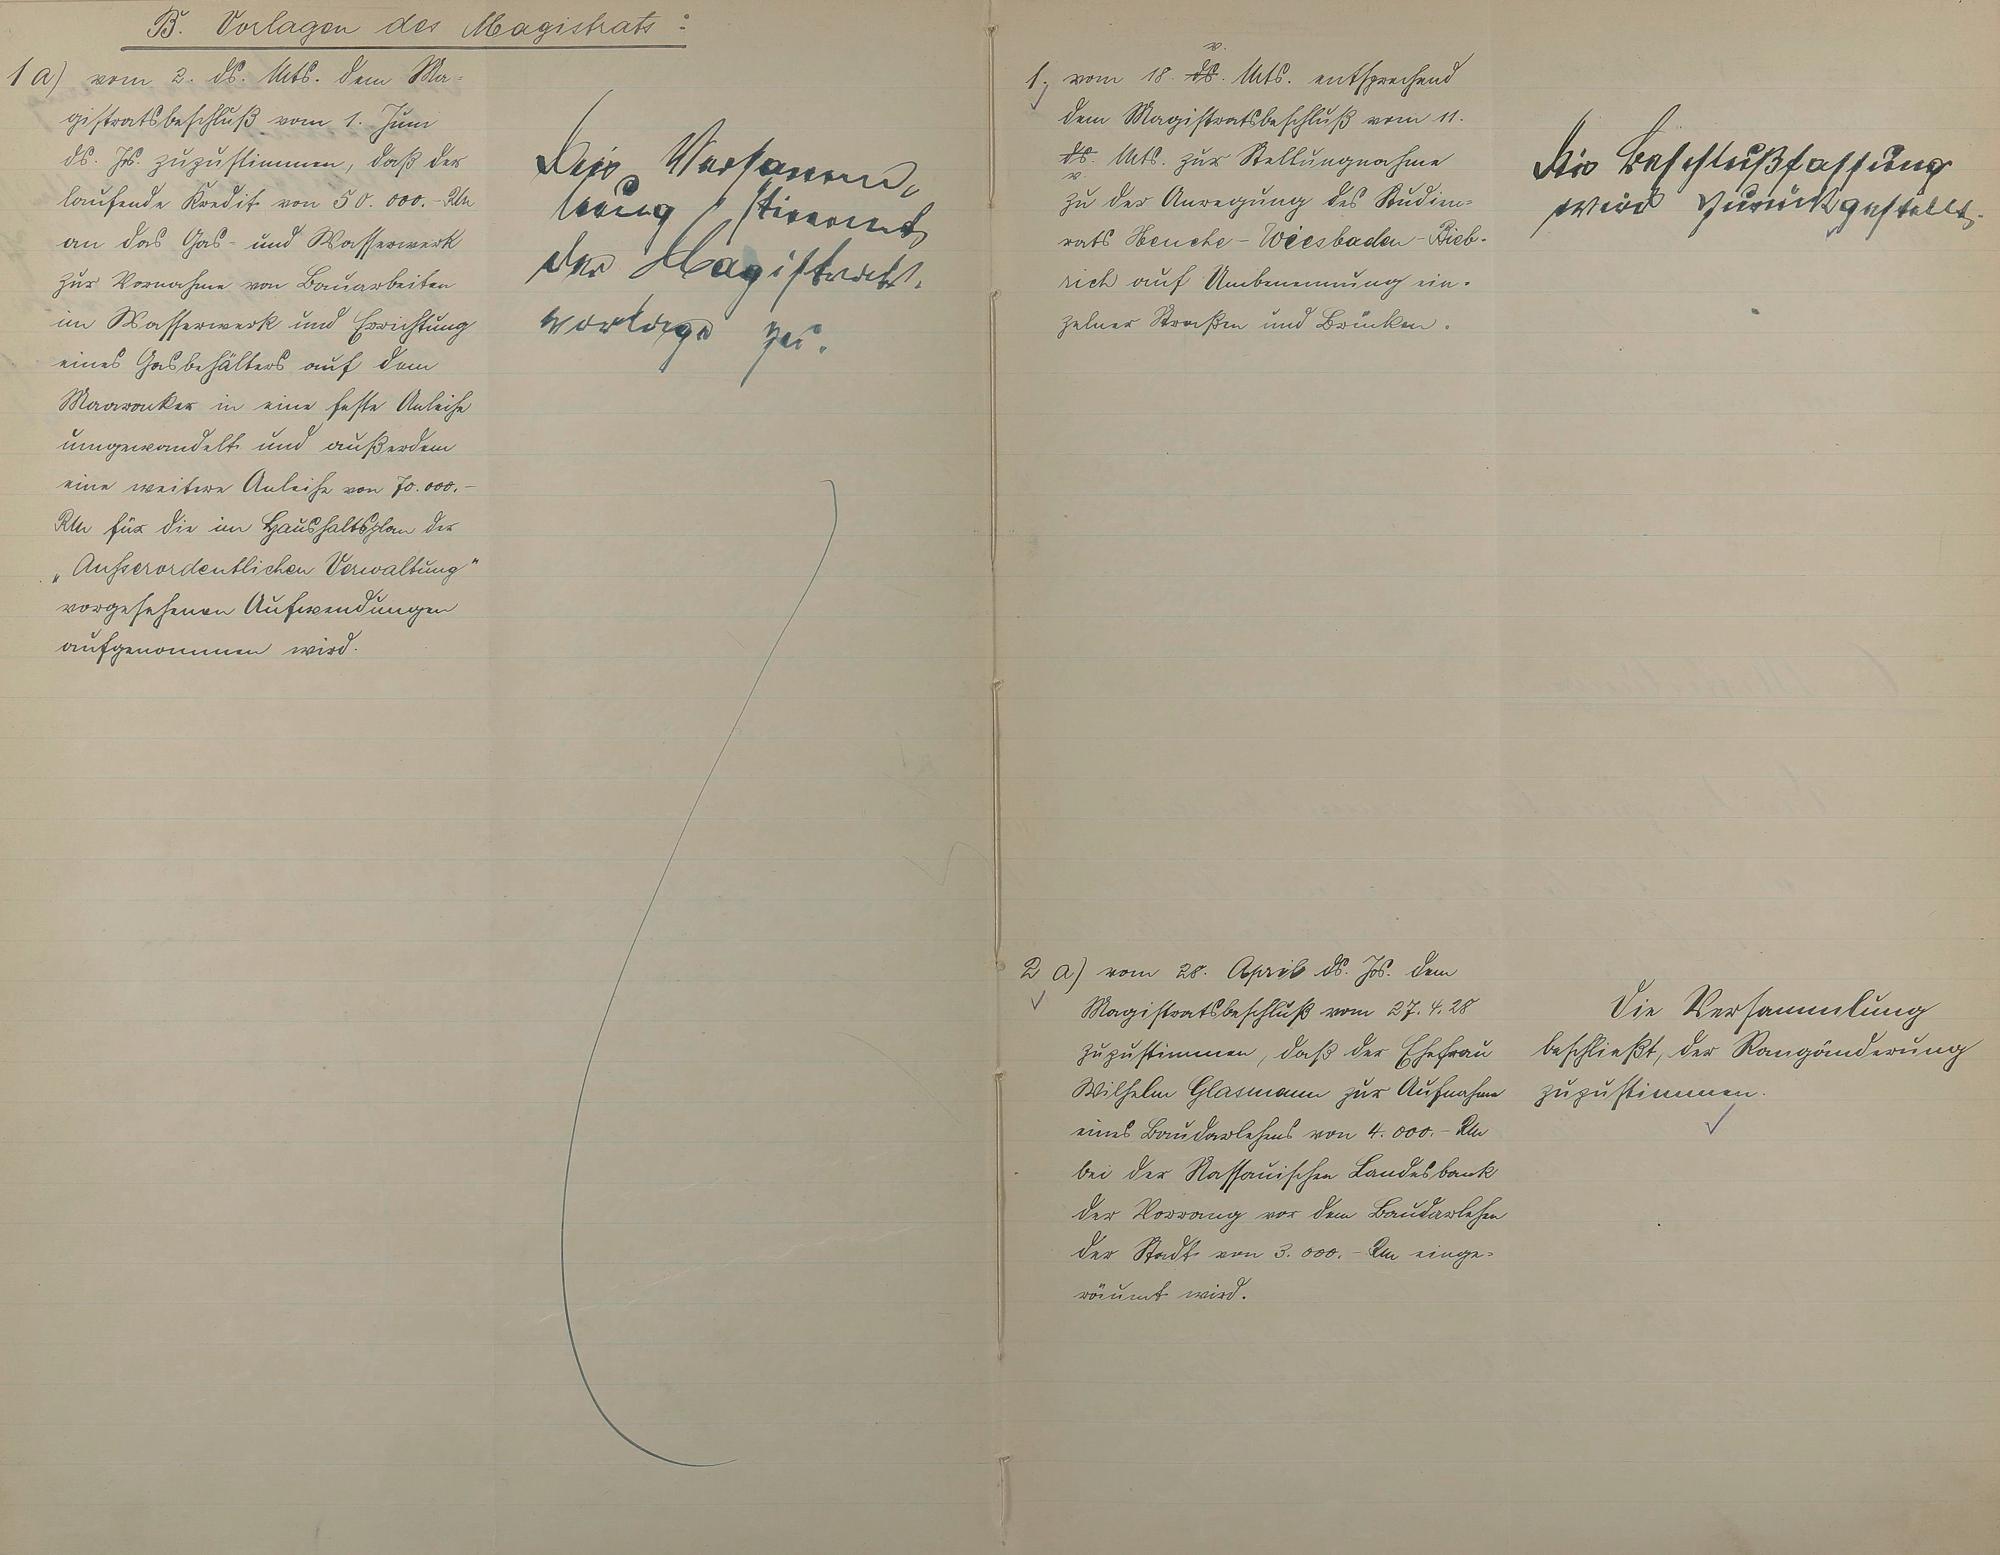 B. Vorlagen des Magistrats:
1 a) vom 2. ds. Mts. dem Ma=
gistratsbeschluß vom 1. Juni
ds. Js. zuzustimmen, daß der
laufende Kredit von 50.000.- RM
an das Gas- und Wasserwerk
zur Vornahme von Bauarbeiten
im Wasserwerk und Errichtung
eines Gasbehälters auf dem
Maaracker in eine feste Anleihe
umgewandelt und außerdem
eine weitere Anleihe von 70.000.-
RM für die im Haushaltsplan der
„Ausserordentlichen Verwaltung"
vorgesehenen Aufwendungen
aufgenommen wird.
Die Versamm-
lung stimmt
der Magistrats-
vorlage zu.
1. vom 18. v. ds. Mts. entsprechend
dem Magistratsbeschluß vom 11.
ds. v. Mts. zur Stellungnahme
zu der Anregung des Studien=
rats - Wiesbaden - Bieb-
rich auf Umbenennung ein-
zelner Straßen und Brücken.
Die Beschlußfassung
wird zurückgestellt.
2 a) vom 28. April ds. Js. dem
Magistratsbeschluß vom 27.4.28
zuzustimmen, daß der Ehefrau
Wilhelm Glasmann zur Aufnahme
eines Baudarlehens von 4.000.- RM
bei der Nassauischen Landesbank
der Vorrang vor dem Baudarlehen
der Stadt von 3.000.- RM einge=
räumt wird.
Die Versammlung
beschließt, der Rangänderung
zuzustimmen.